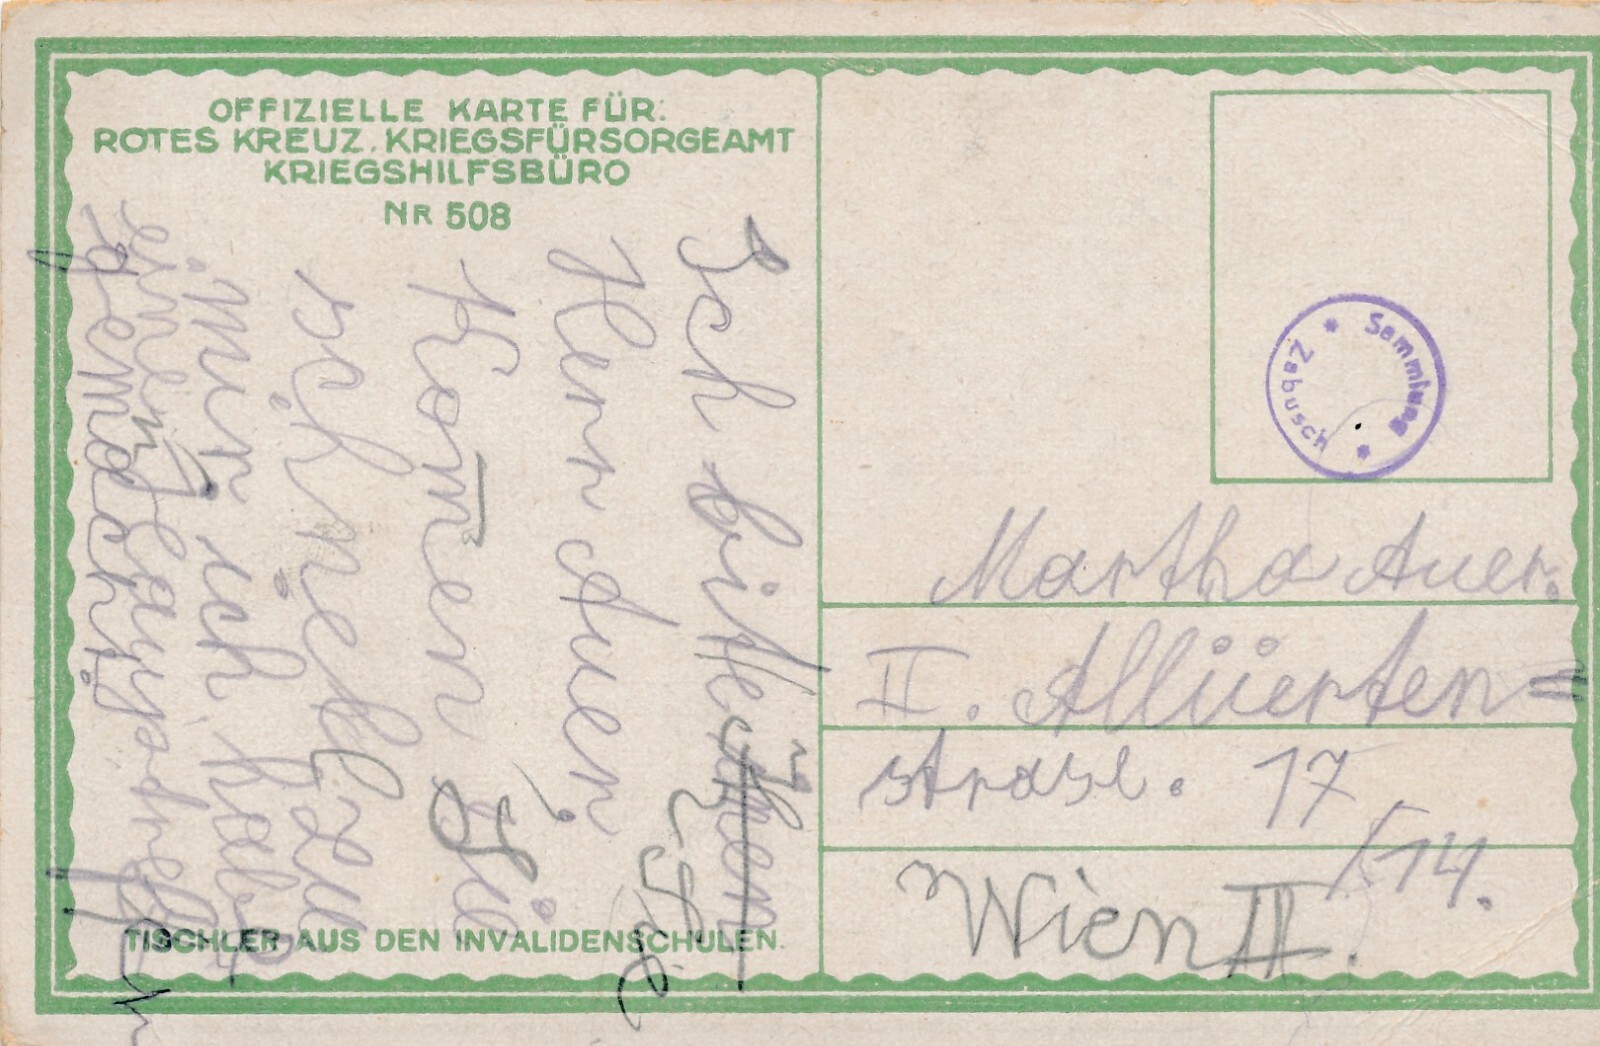 OFFIZIELLE KARTE FÜR:
ROTES KREUZ, KRIEGSFÜRSORGEAMT
KRIEGSHILFSBÜRO
NR 508
Ich bitte Sie
Herr Auer,
Komen Sie
schnell zu
mir ich habe
einen
gemacht.
TISCHLER AUS DEN INVALIDENSCHULEN.
Sammlung Zabusch
Martha Auer.
II. Alliierten=
strasse. 17
/14.
Wien II.